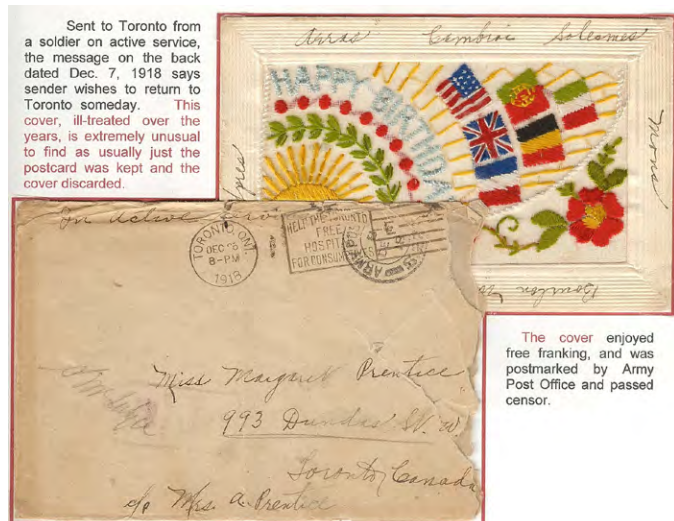 Sent to Toronto from
a soldier on active service,
the message on the back
dated Dec. 7, 1918 says
sender wishes to return to
Toronto someday. This
cover, ill-treated over the
years, is extremely unusual
to find as usually just the
postcard was kept and the
cover discarded.
Arras Cambrai Solesmes
HAPPY BIRTHDA
Mons
Bourlon
On Active
TORONTO, ONT.
DEC 26
8-PM
1918
HELP THE TORONTO
FREE
HOSPITAL
FOR CONSUMPTIVES
ARMY PO
Miss Margaret Prentice
993 Dundas St. W.
Toronto, Canada
c/o Mrs. A. Prentice
The cover enjoyed
free franking, and was
postmarked by Army
Post Office and passed
censor.